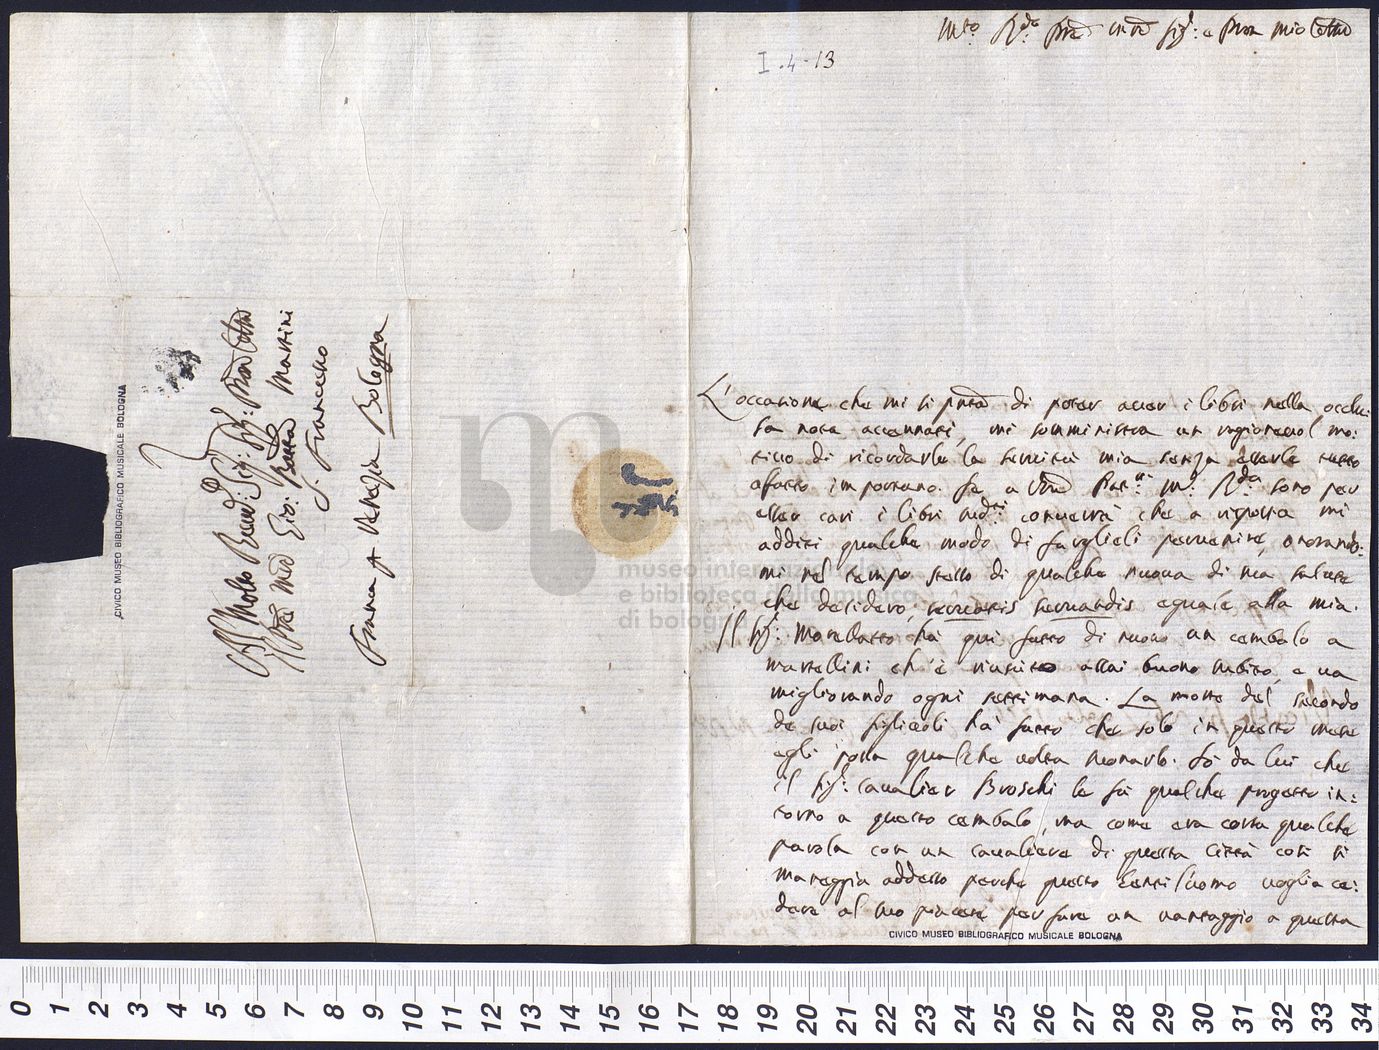 Mto Rdo Pre mro Sigr: e Pron mio Colmo
I.4-13
L'occasione che mi si presta di poter aver i libri nella occlu:
sa nota accennati, mi somministra un ragionevol mo:
tivo di ricordarle la servitù mia senza esserle tutto
afatto importuno. Se a Vra Patertà M. Rda sono per
esser cari i libri sudti converrà che a risposta mi
additi qualche modo di farglieli pervenire, onorando:
mi nel tempo stesso di qualche nuova di sua salute
che desidero, servatis servandis eguale alla mia.
Il Sigr: Morellatto hà qui fatto di nuovo un cembalo a
martellini ch'è riuscito assai buono subito, e va
migliorando ogni settimana. La morte del secondo
de suoi figliuoli hà fatto che solo in questo mese
egli possa qualche volta suonarlo. Sò da lui che
il Sigr: Cavalier Broschi le fà qualche progetto in:
torno a questo cembalo, ma come era corsa qualche
parola con un cavaliere di questa Città così si
maneggia adesso perche questo Gentil'uomo voglia ce:
dere al suo piacere per fare un vantaggio a questa
Al Molto Revdo: Sigr: Pron Colmo
Il Pre mro Gio: Batta Martini
S. Francesco
Franca A Venezia Bologna
CIVICO MUSEO BIBLIOGRAFICO MUSICALE BOLOGNA
CIVICO MUSEO BIBLIOGRAFICO MUSICALE BOLOGNA
museo internazionale
e biblioteca della musica
di bologna
0 1 2 3 4 5 6 7 8 9 10 11 12 13 14 15 16 17 18 19 20 21 22 23 24 25 26 27 28 29 30 31 32 33 34